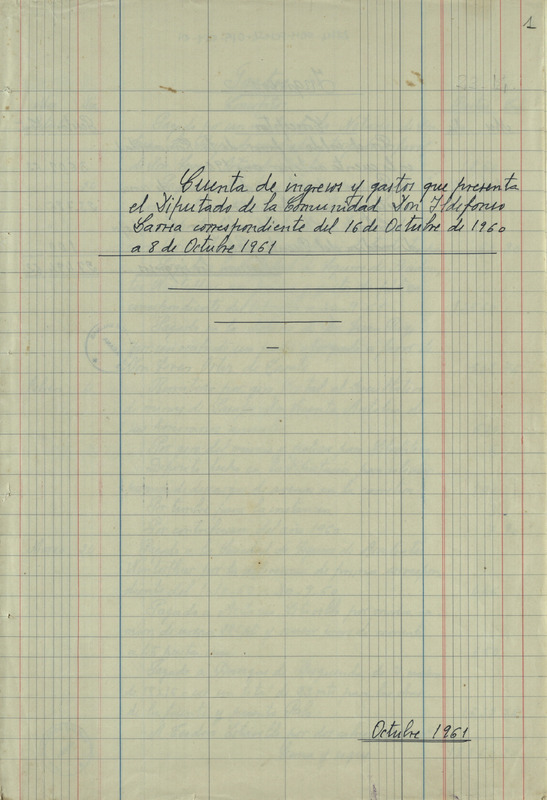 1
Cuenta de ingresos y gastos que presenta
el Diputado de la Comunidad Don Ildefonso
correspondiente del 16 de Octubre de 1960
a 8 de Octubre 1961
Octubre 1961